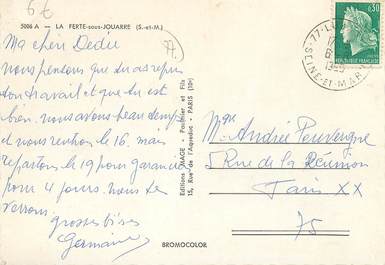 6€
5086 A — LA FERTE-sous-JOUARRE (S.-et-M.)
Ma chère Dédée
nous pensons que tu as repris
ton travail et que tu est
bien. nous avons beau temps
et nous rentron le 16, mais
repartons le 19 pour
pour 4 jours. nous te
verrons.
grosses bises
Germaine
Editions IMAGE - Pouthier et Fils
15, Rue de l'Aqueduc - PARIS (10e)
BROMOCOLOR
77-L
17
6
SEINE-ET-MAR
0,30
REPUBLIQUE FRANÇAISE
POSTES
Mme André Pouvergne
5 Rue de la Réunion
Paris XX
75